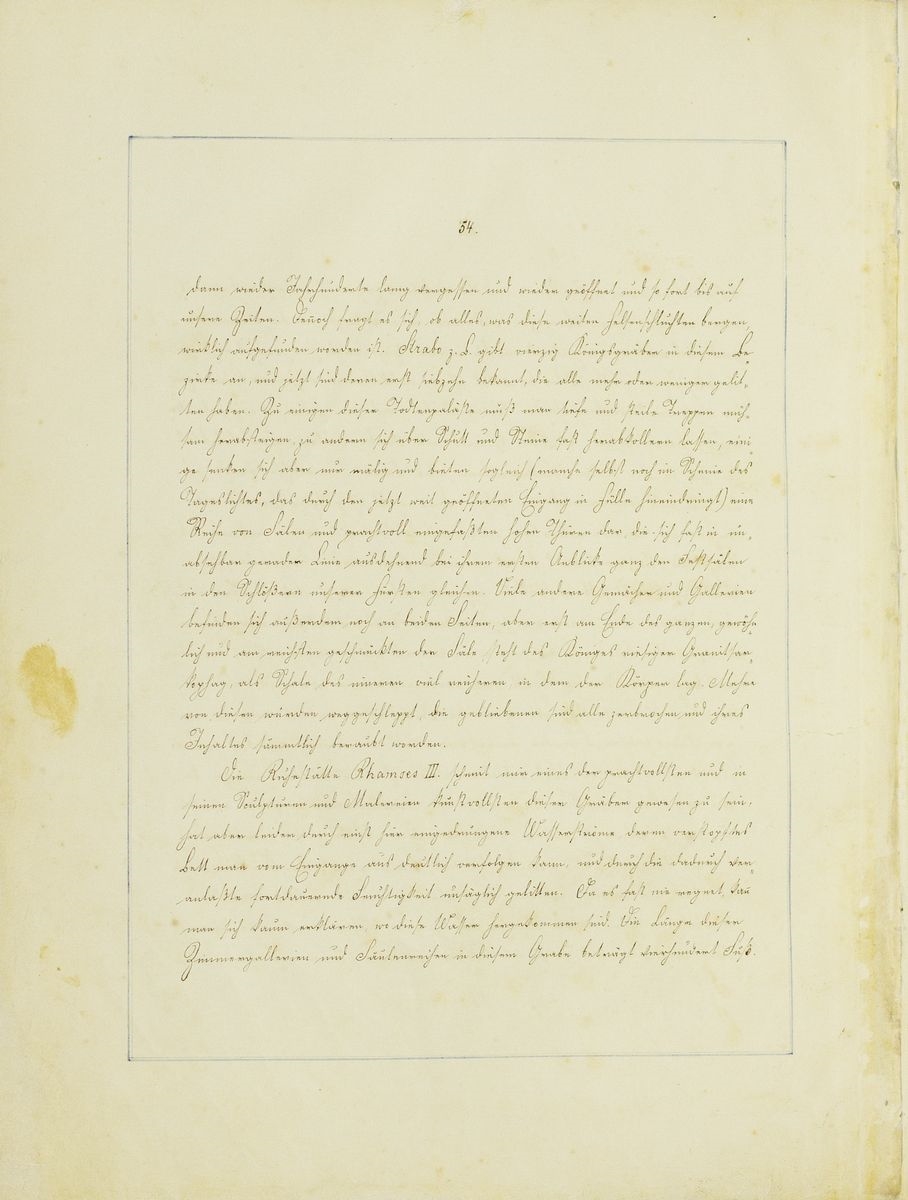 54.
dann wieder Jahrhunderte lang vergessen und wieder geöffnet und so fort bis auf
unsere Zeiten. Deñoch fragt es sich, ob alles, was diese weiten Felsenschluchten bergen
wirklich aufgefunden worden ist. Strabo z. B. gibt vierzig Königsgräber in diesem Be-
zirke an, und jetzt sind deren erst siebzehn bekannt, die alle mehr oder weniger gelit-
ten haben. Zu einigen dieser Todtenpaläste muß man tiefe und steile Treppen müh-
sam herabsteigen, zu andern sich über Schutt und Steine fast herabkollern lassen, eini-
ge senken sich aber nur mälig und bieten sogleich (manche selbst noch im Scheine des
Tageslichtes, das durch den jetzt weit geöffneten Eingang in Fülle hineindringt) eine
Reihe von Sälen und prachtvoll eingefaßten hohen Thüren dar, die sich fast in un-
absehbar gerader Linie ausdehnend bei ihrem ersten Anblicke ganz den Festsälen
in den Schlößern unserer Fürsten gleichen. Viele andere Gemächer und Gallerien
befinden sich außerdem noch an beiden Seiten, aber erst am Ende des ganzen, gewöhn-
lich und am reichsten geschmückten der Säle steht des Königes riesiger Granitsar-
kophag, als Schale des inneren viel reicheren, in dem der Körper lag. Mehre
von diesen wurden weggeschleppt, die gebliebenen sind alle zerbrochen und ihres
Inhaltes sämmtlich beraubt worden.
Die Ruhestätte Rhamses III. scheint mir eines der prachtvollsten und in
seinen Sculpturen und Malereien kunstvollsten dieser Gräber gewesen zu sein,
hat aber leider durch einst hier eingedrungene Wasserströme deren verstopftes
Bett man vom Eingange aus deutlich verfolgen kann, und durch die dadurch ver-
anlaßte fortdauernde Feuchtigkeit unsäglich gelitten. Da es fast nie regnet, kañ
man sich kaum erklären, wo diese Wasser hergekommen sind. Die Länge dieser
Zimmergallerien und Säulenreihen in diesem Grabe beträgt vierhundert Fuß.